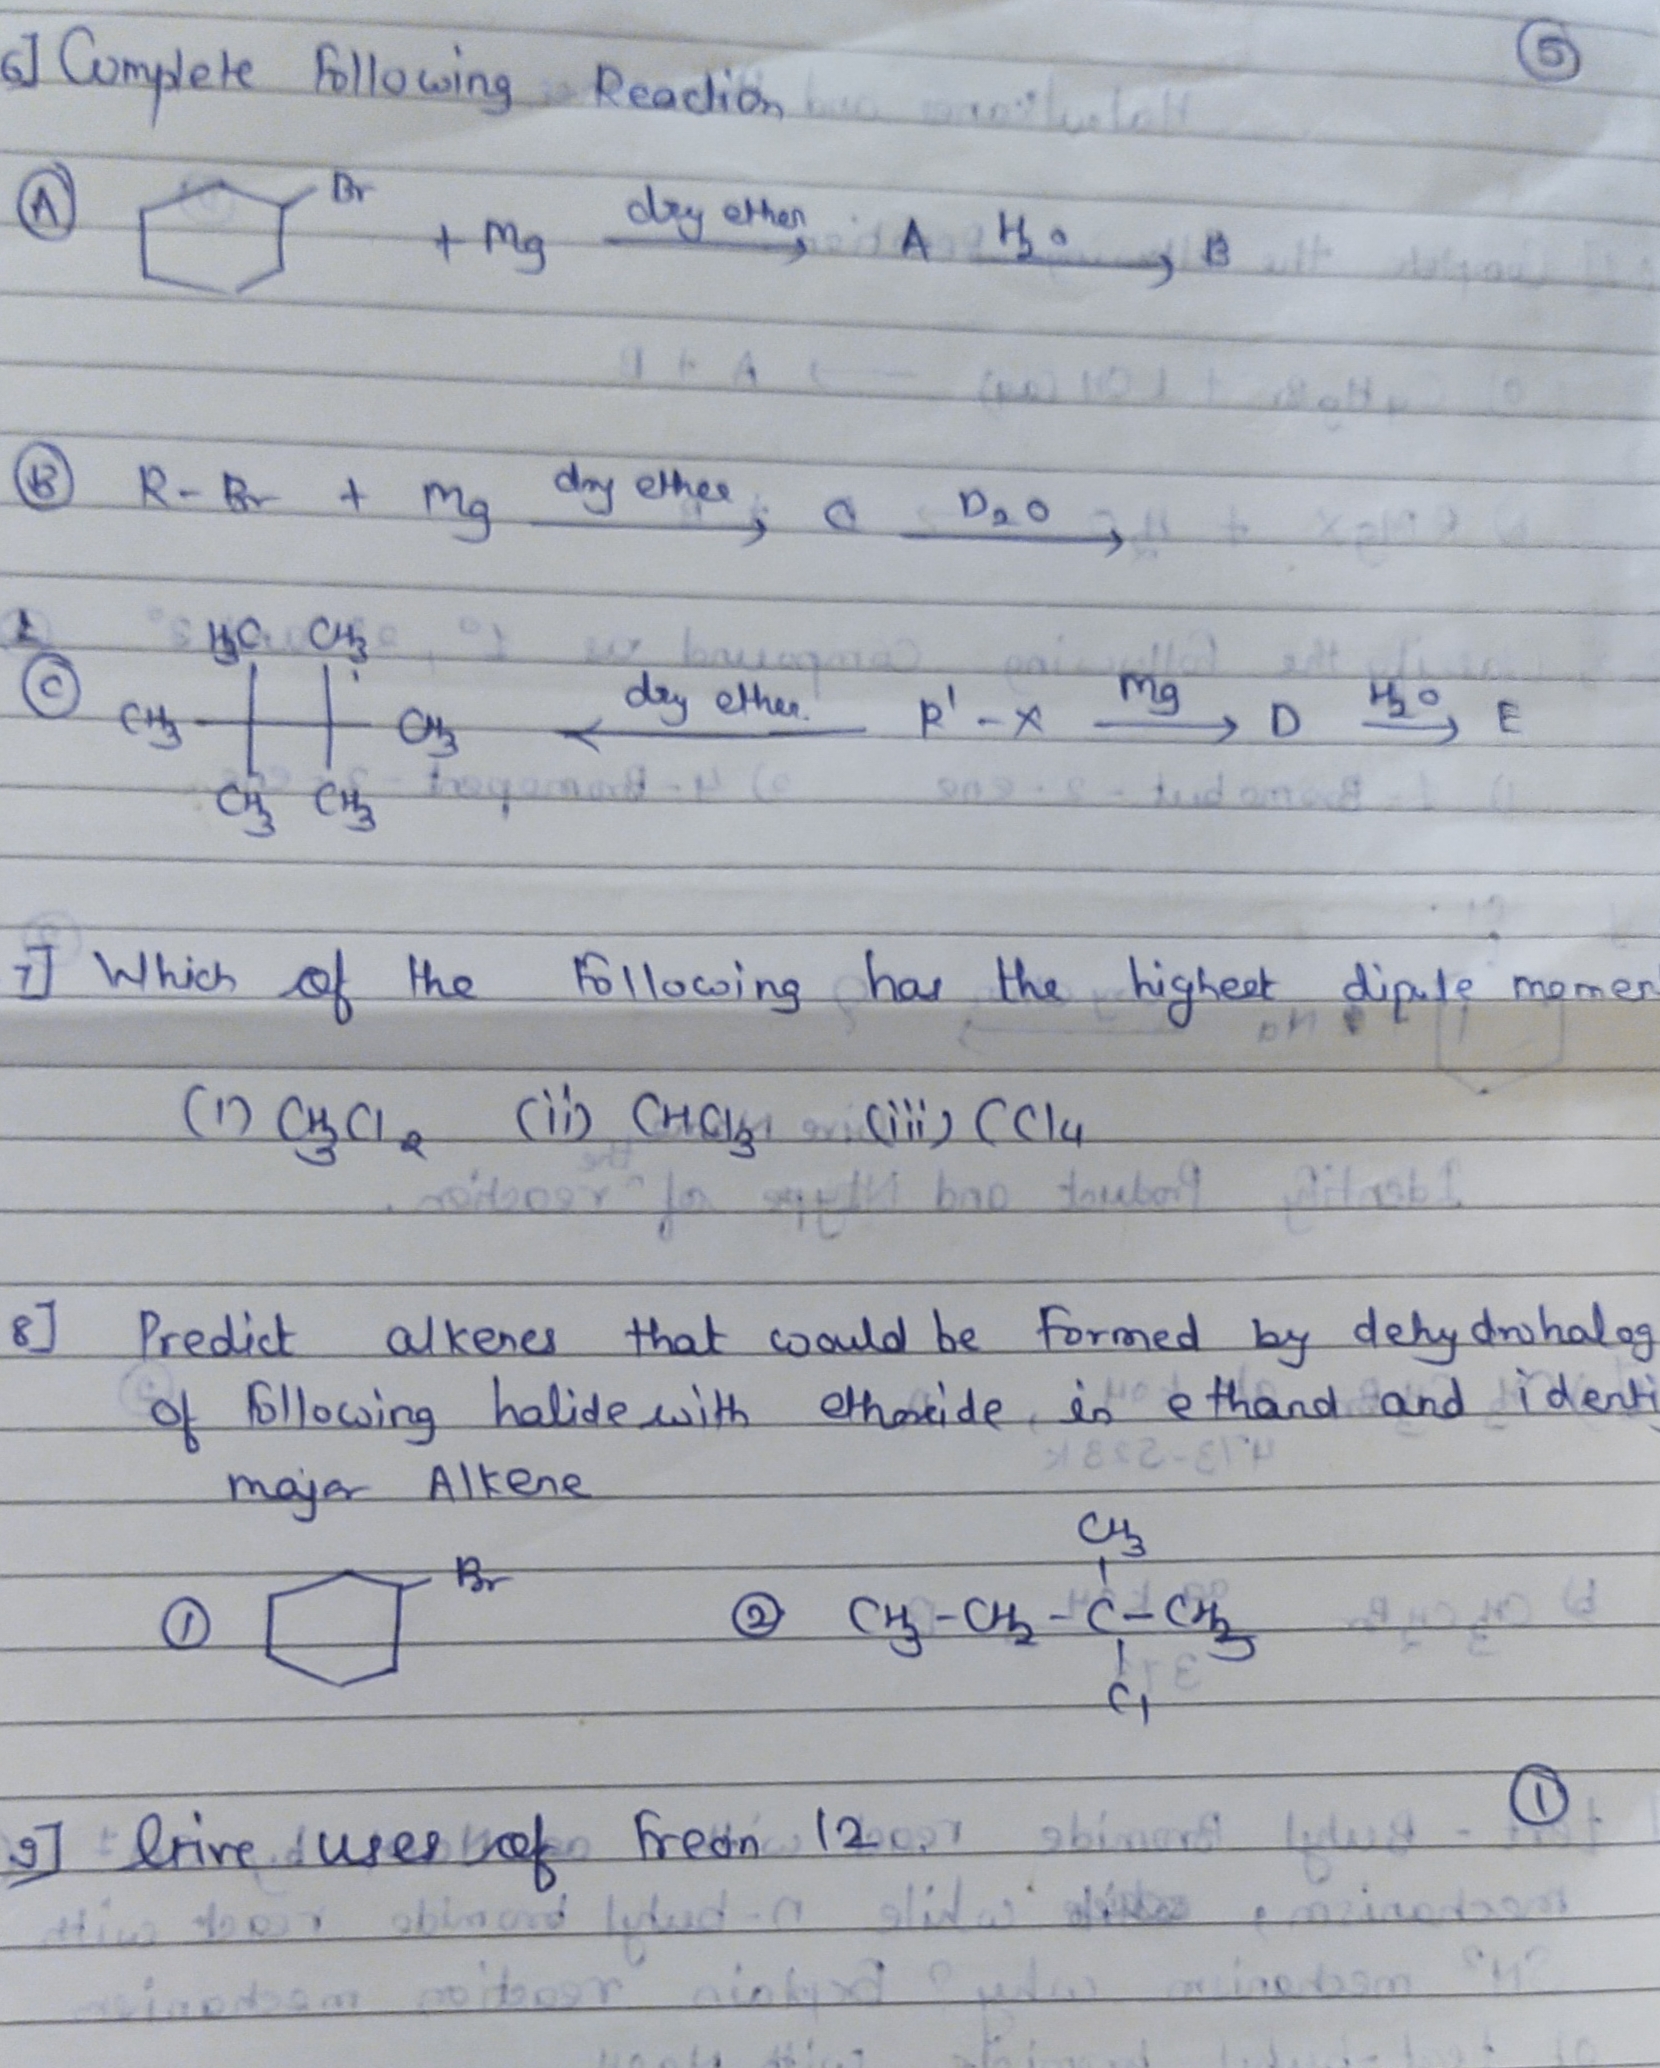 6] Complete Following Reaction ⑤
Ⓐ Br + Mg dry ether A H₂O B
Ⓑ R-Br + Mg dry ether C D₂O
H₃C CH₃
Ⓒ CH₃ CH₃ dry ether R'-X Mg D H₂O E
CH₃ CH₃
7] Which of the Following has the highest dipole momen
(i) CH₃Cl₂ (ii) CHCl₃ (iii) CCl₄
8] Predict alkenes that would be formed by dehydrohalog
of following halide with ethoxide, in ethanol and identi
major Alkene
CH₃
① Br ② CH₃-CH₂-C-CH₃
Cl
①
9] Give uses of Freon 12.